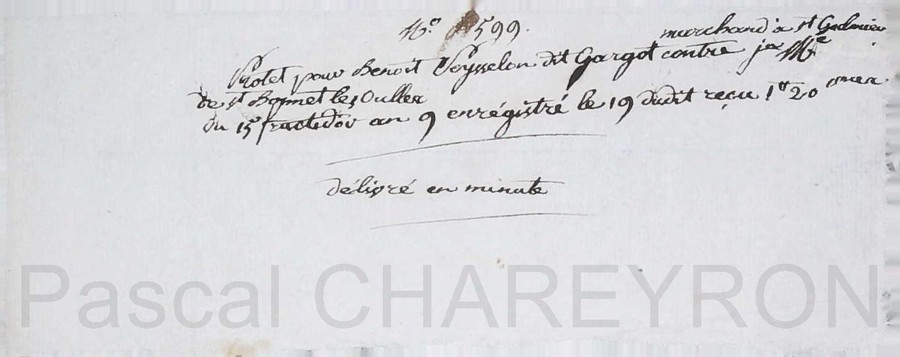 N.o 599.
marchand à st Galmier
Protet pour Benoit Peysselon dit Gargot contre
de st Bonnet les Oulles
du 15 fructidor an 9 enrégistré le 19 dudit reçu 1 20
délivré en minute
Pascal CHAREYRON